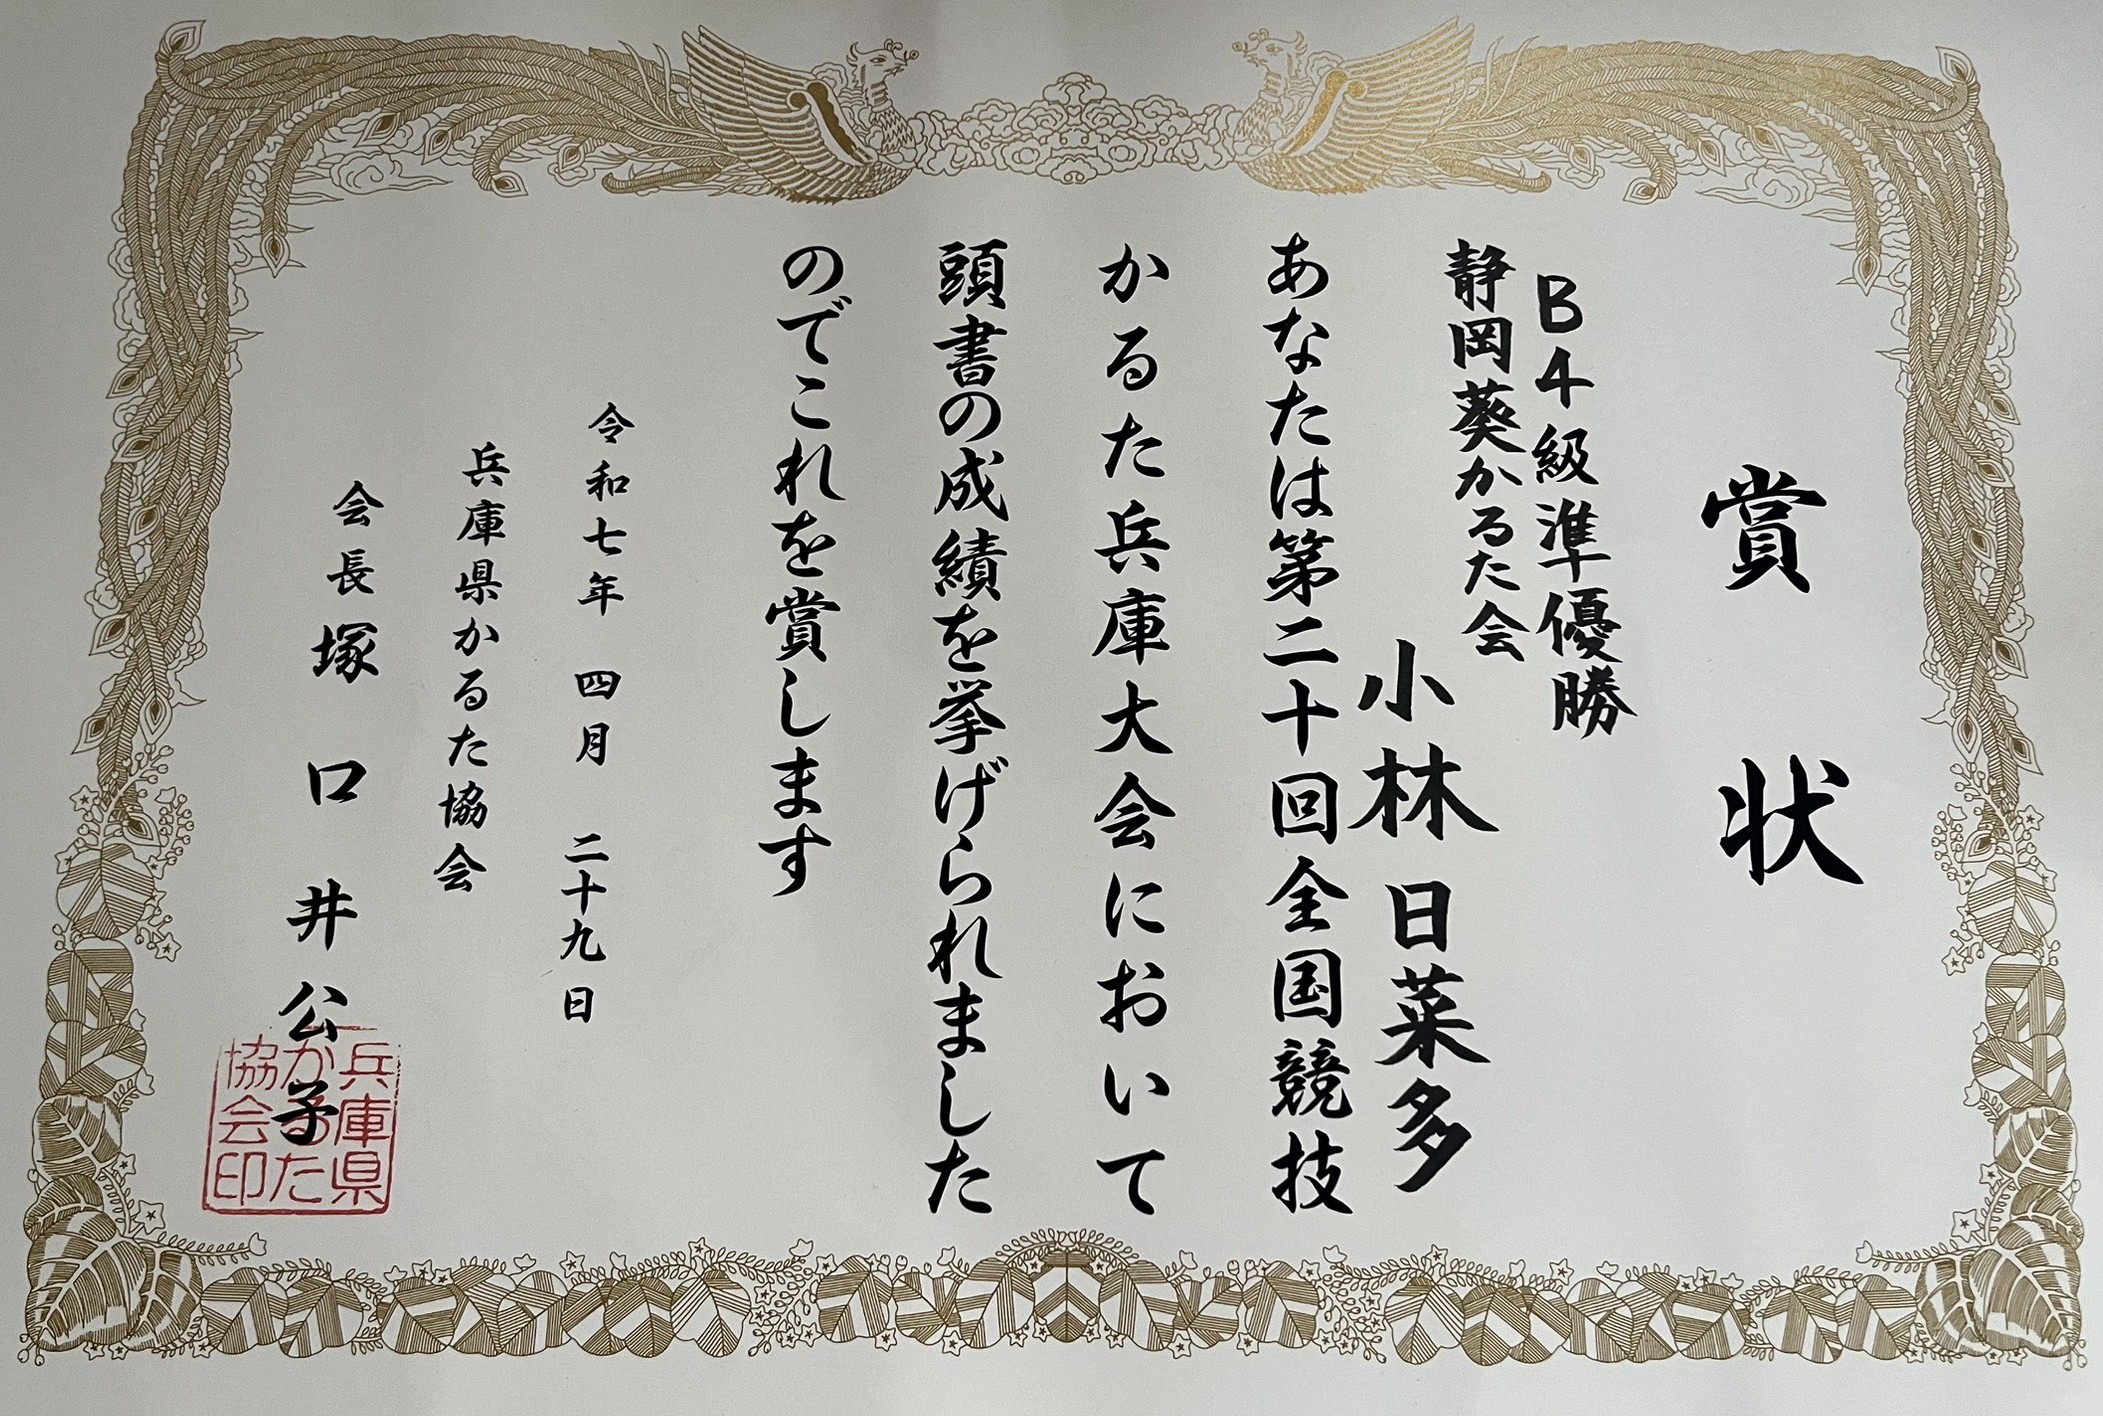 賞状
B4級準優勝
静岡葵かるた会
小林日菜多
あなたは第二十回全国競技
かるた兵庫大会において
頭書の成績を挙げられました
のでこれを賞します
令和七年 四月 二十九日
兵庫県かるた協会
会長 塚口井公子
兵庫県
かるた
協会印